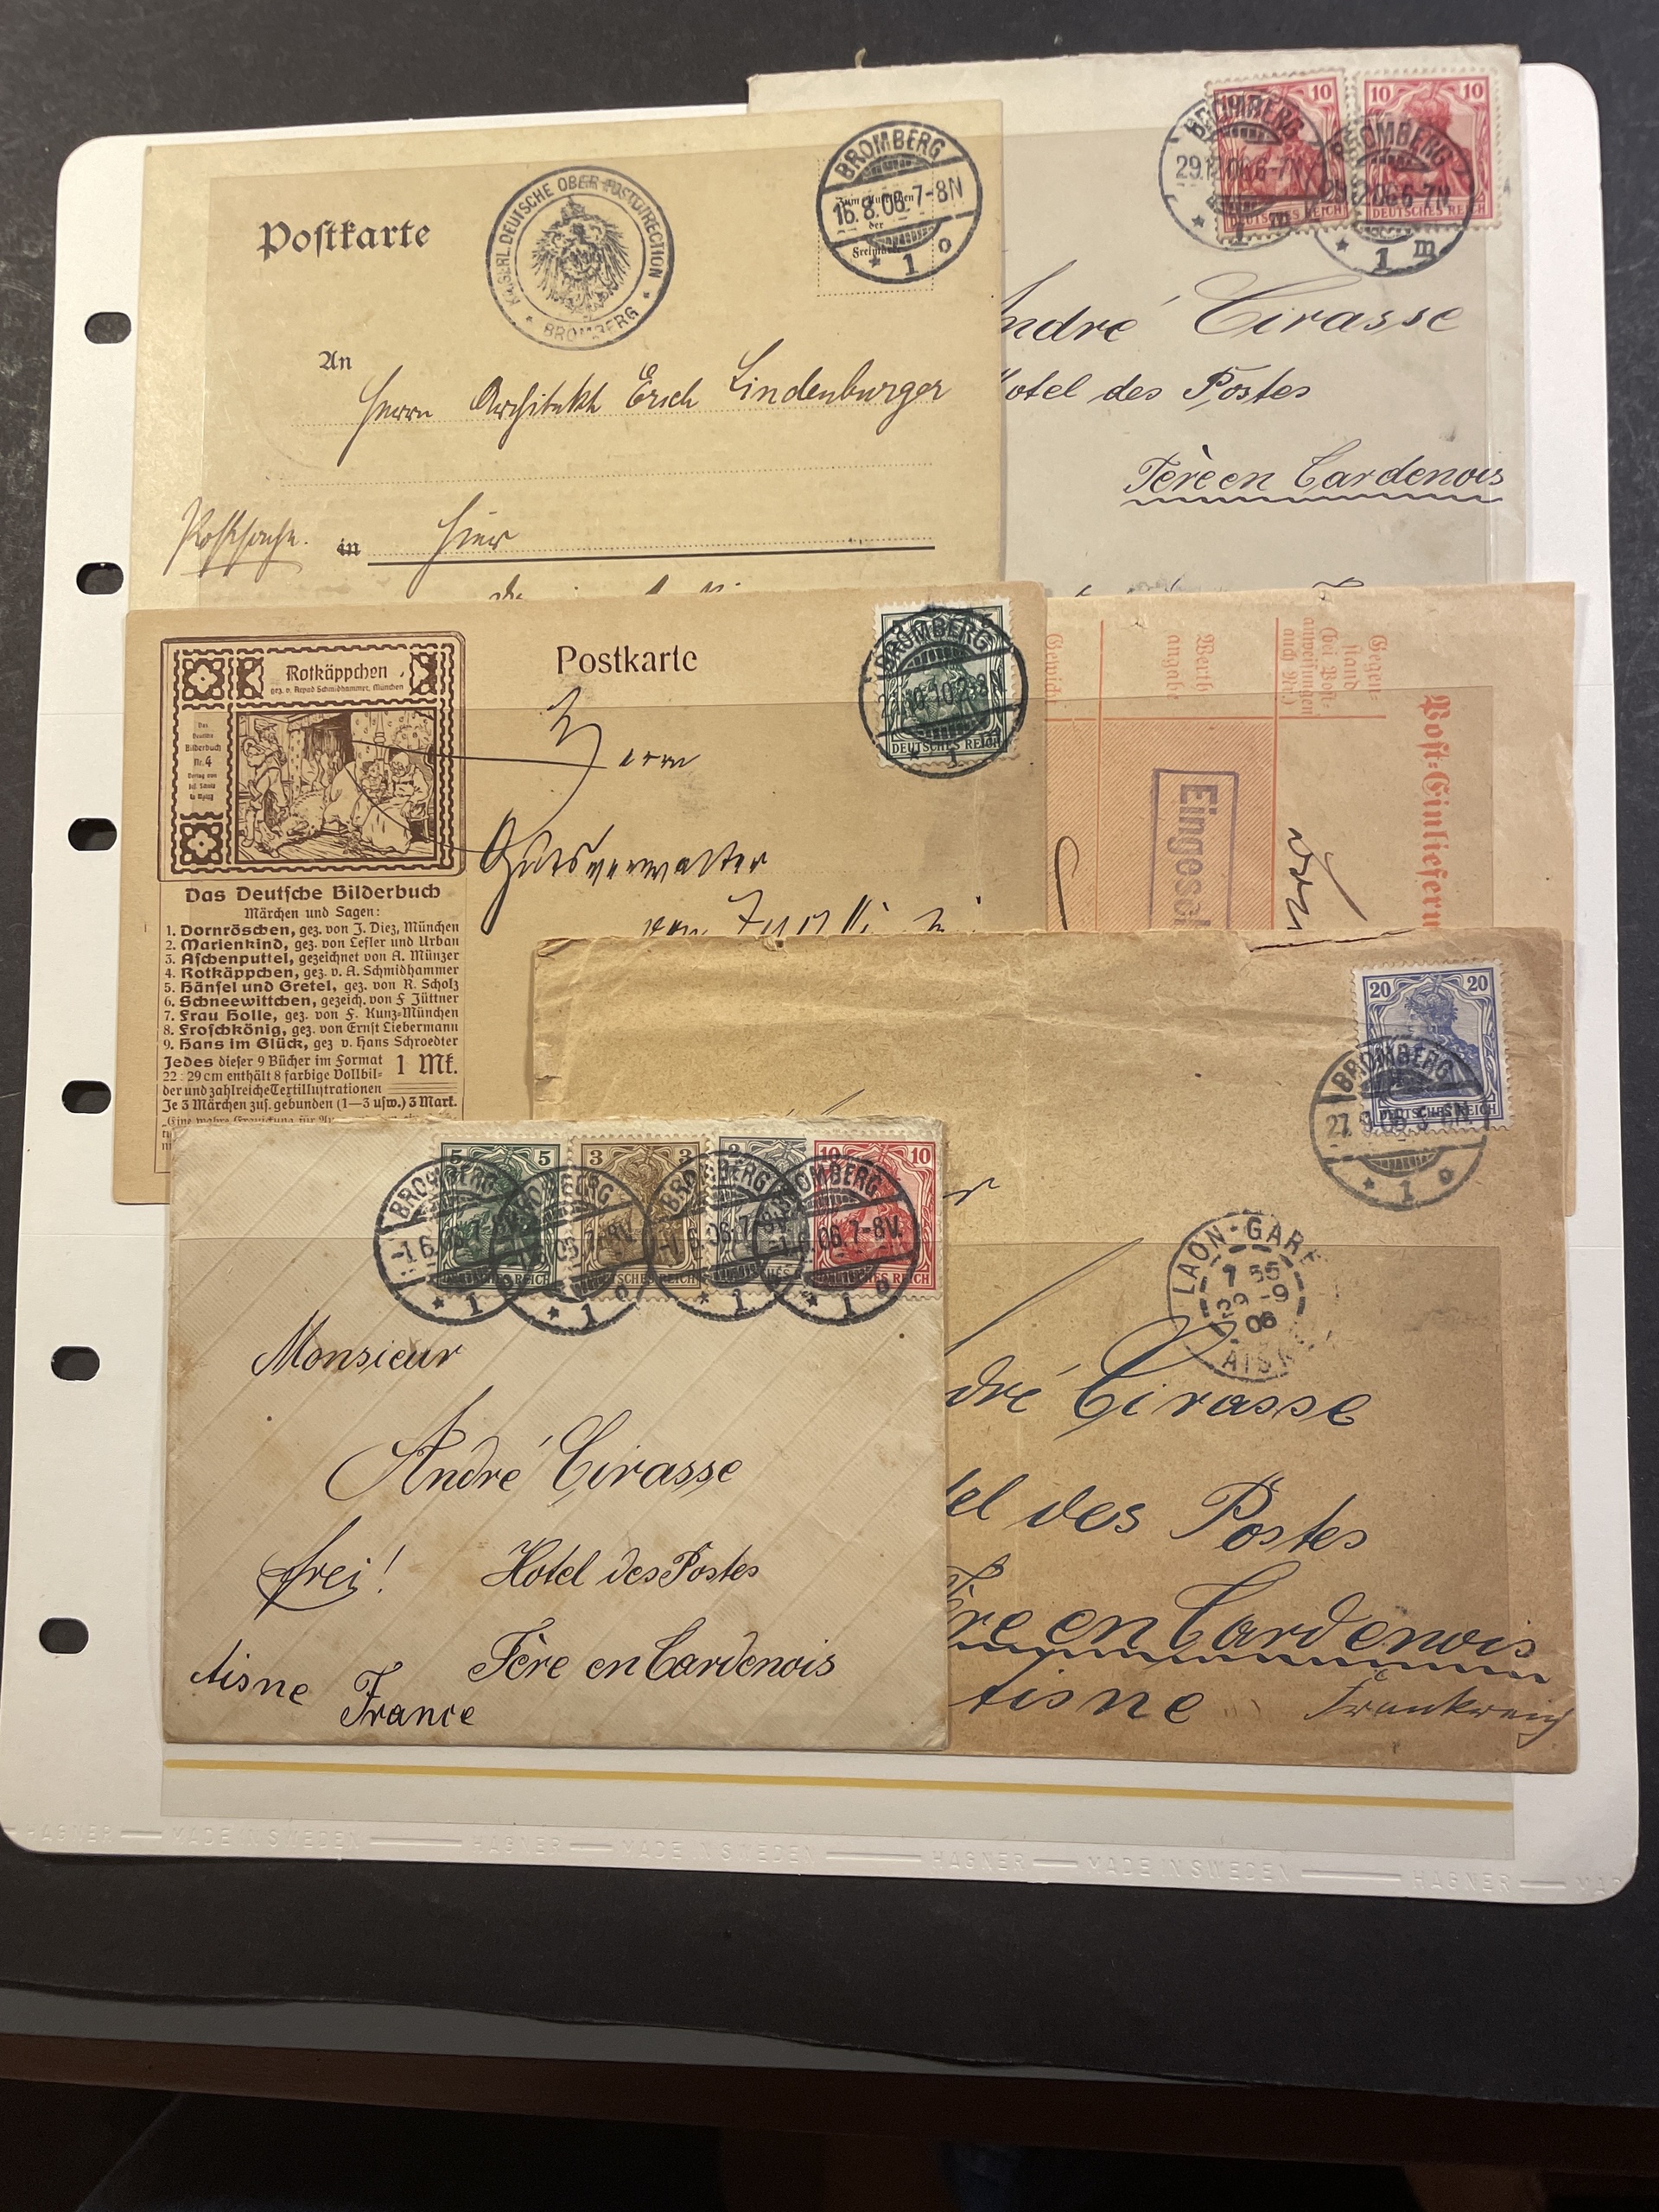 Postkarte
KAISERL. DEUTSCHE OBER-POSTDIRECTION
* BROMBERG *
BROMBERG
16.8.06.7-8N
* 1 o
Zum Aufkleben
der
Freimarke
An
Herrn Architekt Erich Lindenburger
Postsache.
in Hier
10
10 10
DEUTSCHES REICH
DEUTSCHES REICH
BROMBERG
29.12.06.6-7N
* 1 m
BROMBERG
29.12.06.6-7N
* 1 m
André Cirasse
Hotel des Postes
Fère en Cardenois
Rotkäppchen
gez. v. Arpad Schmidhammer, München
Das
Deutsche
Bilderbuch
Nr. 4
Das Deutsche Bilderbuch
Märchen und Sagen:
1. Dornröschen, gez. von J. Diez, München
2. Marienkind, gez. von Lefler und Urban
3. Aschenputtel, gezeichnet von A. Münzer
4. Rotkäppchen, gez. v. A. Schmidhammer
5. Hänsel und Gretel, gez. von R. Scholz
6. Schneewittchen, gezeich. von F Jüttner
7. Frau Holle, gez. von F. Kunz-München
8. Froschkönig, gez. von Ernst Liebermann
9. Hans im Glück, gez v. Hans Schroedter
Jedes dieser 9 Bücher im Format
22:29 cm enthält 8 farbige Vollbil-
der und zahlreiche Textillustrationen
1 Mk.
Je 3 Märchen zus. gebunden (1—3 usw.) 3 Mark.
Postkarte
BROMBERG
DEUTSCHES REICH
* 1
Herrn
Gutsverwalter
von
Gegen-
stand
(bei Post-
anweisungen
auch Nr.)
Werth
angabe
Gewicht
Post-Einlieferun
Eingesch
20 20
DEUTSCHES REICH
BROMBERG
27.9.06.5-6N.
* 1 o
LAON-GARE
7 55
29 -9
06
AISNE
dré Cirasse
tel des Postes
Fère en Cardenois
Aisne
Frankreich
5 5
3 3
2
10 10
DEUTSCHES REICH
DEUTSCHES REICH
DEUTSCHES REICH
BROMBERG
-1.6.06.7-8V.
* 1 o
BROMBERG
-1.6.06.7-8V.
* 1 o
BROMBERG
-1.6.06.7-8V.
* 1
BROMBERG
-1.6.06.7-8V.
* 1 o
Monsieur
André Cirasse
frei! Hotel des Postes
Fère en Cardenois
Aisne
France
HAGNER — MADE IN SWEDEN — HAGNER — MADE IN SWEDEN — HAGNER — MADE IN SWEDEN — HAGNER — MAD